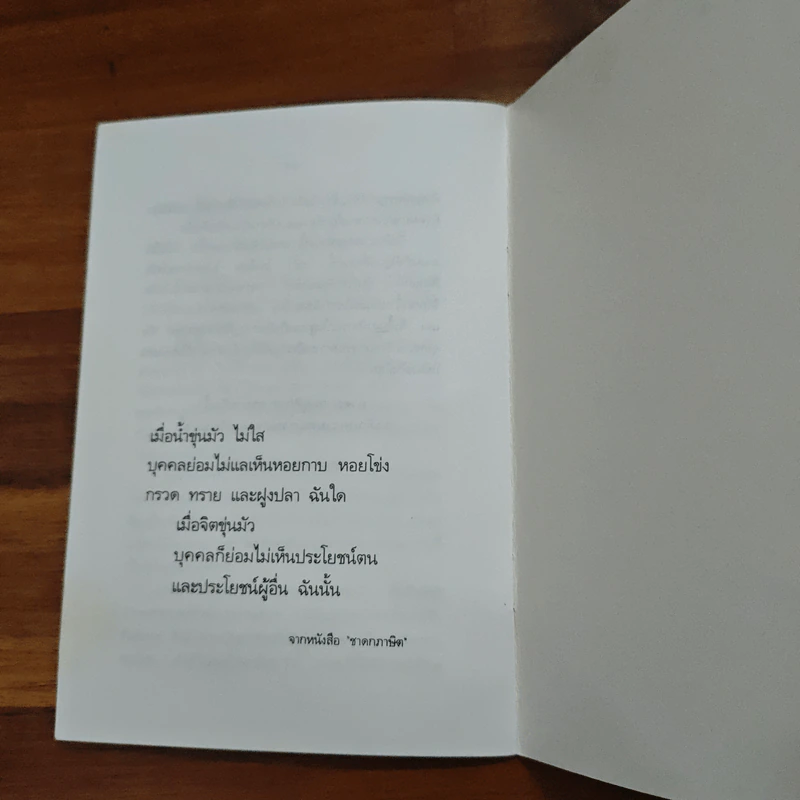 เมื่อน้ำขุ่นมัว ไม่ใส
บุคคลย่อมไม่แลเห็นหอยกาบ หอยโข่ง
กรวด ทราย และฝูงปลา ฉันใด
เมื่อจิตขุ่นมัว
บุคคลก็ย่อมไม่เห็นประโยชน์ตน
และประโยชน์ผู้อื่น ฉันนั้น
จากหนังสือ 'ชาดกภาษิต'